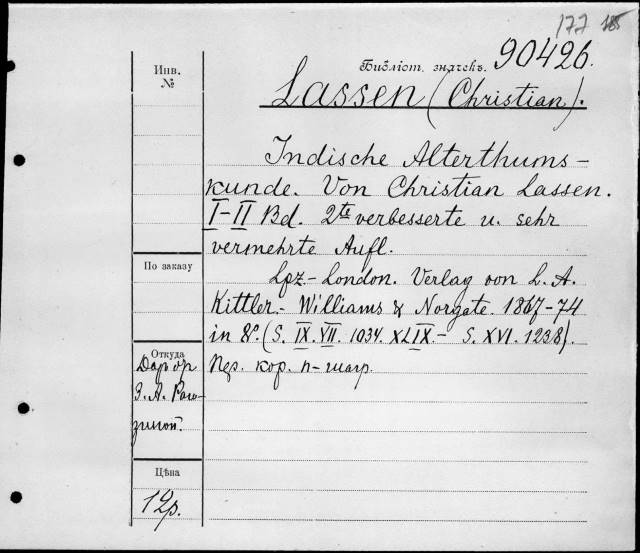 177 185
Инв.
№
Библіот. значекъ. 90426.
Lassen (Christian).
Indische Alterthums-
kunde. Von Christian Lassen.
I-II Bd. 2te verbesserte u. sehr
vermehrte Aufl.
По заказу
Lpz.-London. Verlag von L. A.
Kittler.- Williams & Norgate. 1867-74
in 8º. (S. IX. VII. 1034. XLIX.- S. XVI. 1238).
Откуда
Пер. кор. п-шагр.
Даръ
З. А. Раго-
зиной.
Цѣна
12р.